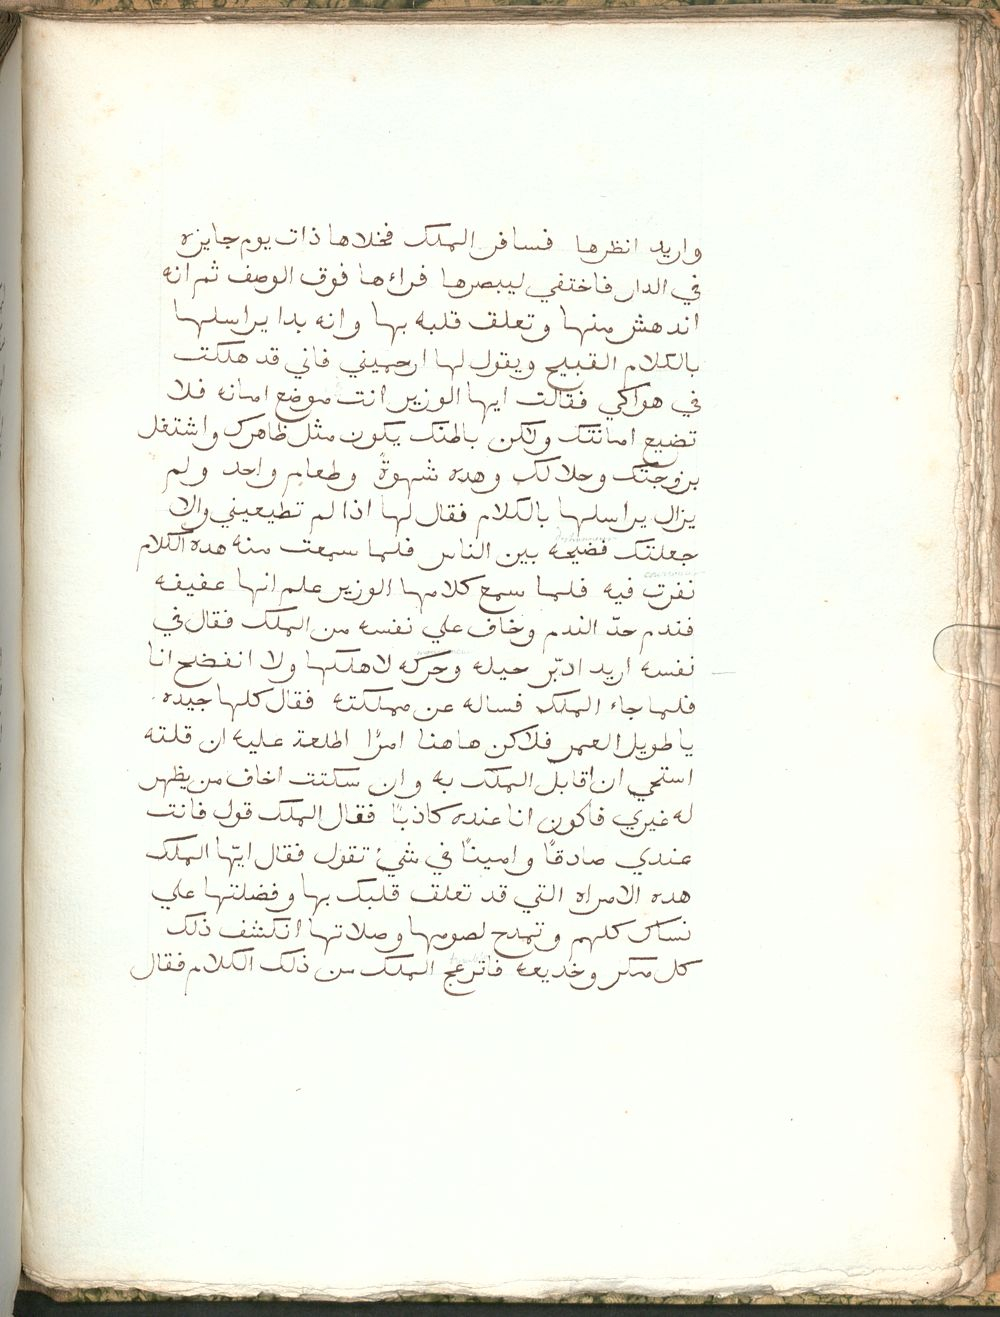 واريد انظرها فسافر الملك فخلاها ذات يوم جايزه
في الدار فاختفي ليبصرها فراءها فوق الوصف ثم انه
اندهش منها وتعلق قلبه بها وانه بدا يراسلها
بالكلام القبيح ويقول لها ارحميني فاني قد هلكت
في هواكي فقالت ايها الوزير انت موضع امانه فلا
تضيع امانتك ولكن باطنك يكون مثل ظاهرك واشتغل
بزوجتك وحلالك وهده شهوةً وطعام واحد ولم
يزال يراسلها بالكلام فقال لها اذا لم تطيعيني والا
جعلتك فضيحه بين الناس فلما سمعت منه هده الكلام
نفرت فيه فلما سمع كلامها الوزير علم انها عفيفه
فندم حدّ الندم وخاف علي نفسه من الملك فقال في
نفسه اريد ادبّر حيله وحركه لاهلكها ولا انفضح انا
فلما جاء الملك فساله عن مملكته فقال كلها جيده
يا طويل العمر فلاكن هاهنا امرًا اطلعت عليه ان قلته
استحي ان اقابل الملك به وان سكتت اخاف من يظهر
له غيري فأكون انا عنده كاذبًا فقال الملك قول فانت
عندي صادقًا وامينًا في شيئ تقول فقال ايّها الملك
هده الامراه التي قد تعلق قلبك بها وفضلتها علي
نساك كلهم وتمدح لصومها وصلاتها انكشف ذلك
كل مكر وخديعه فانزعج الملك من ذلك الكلام فقال